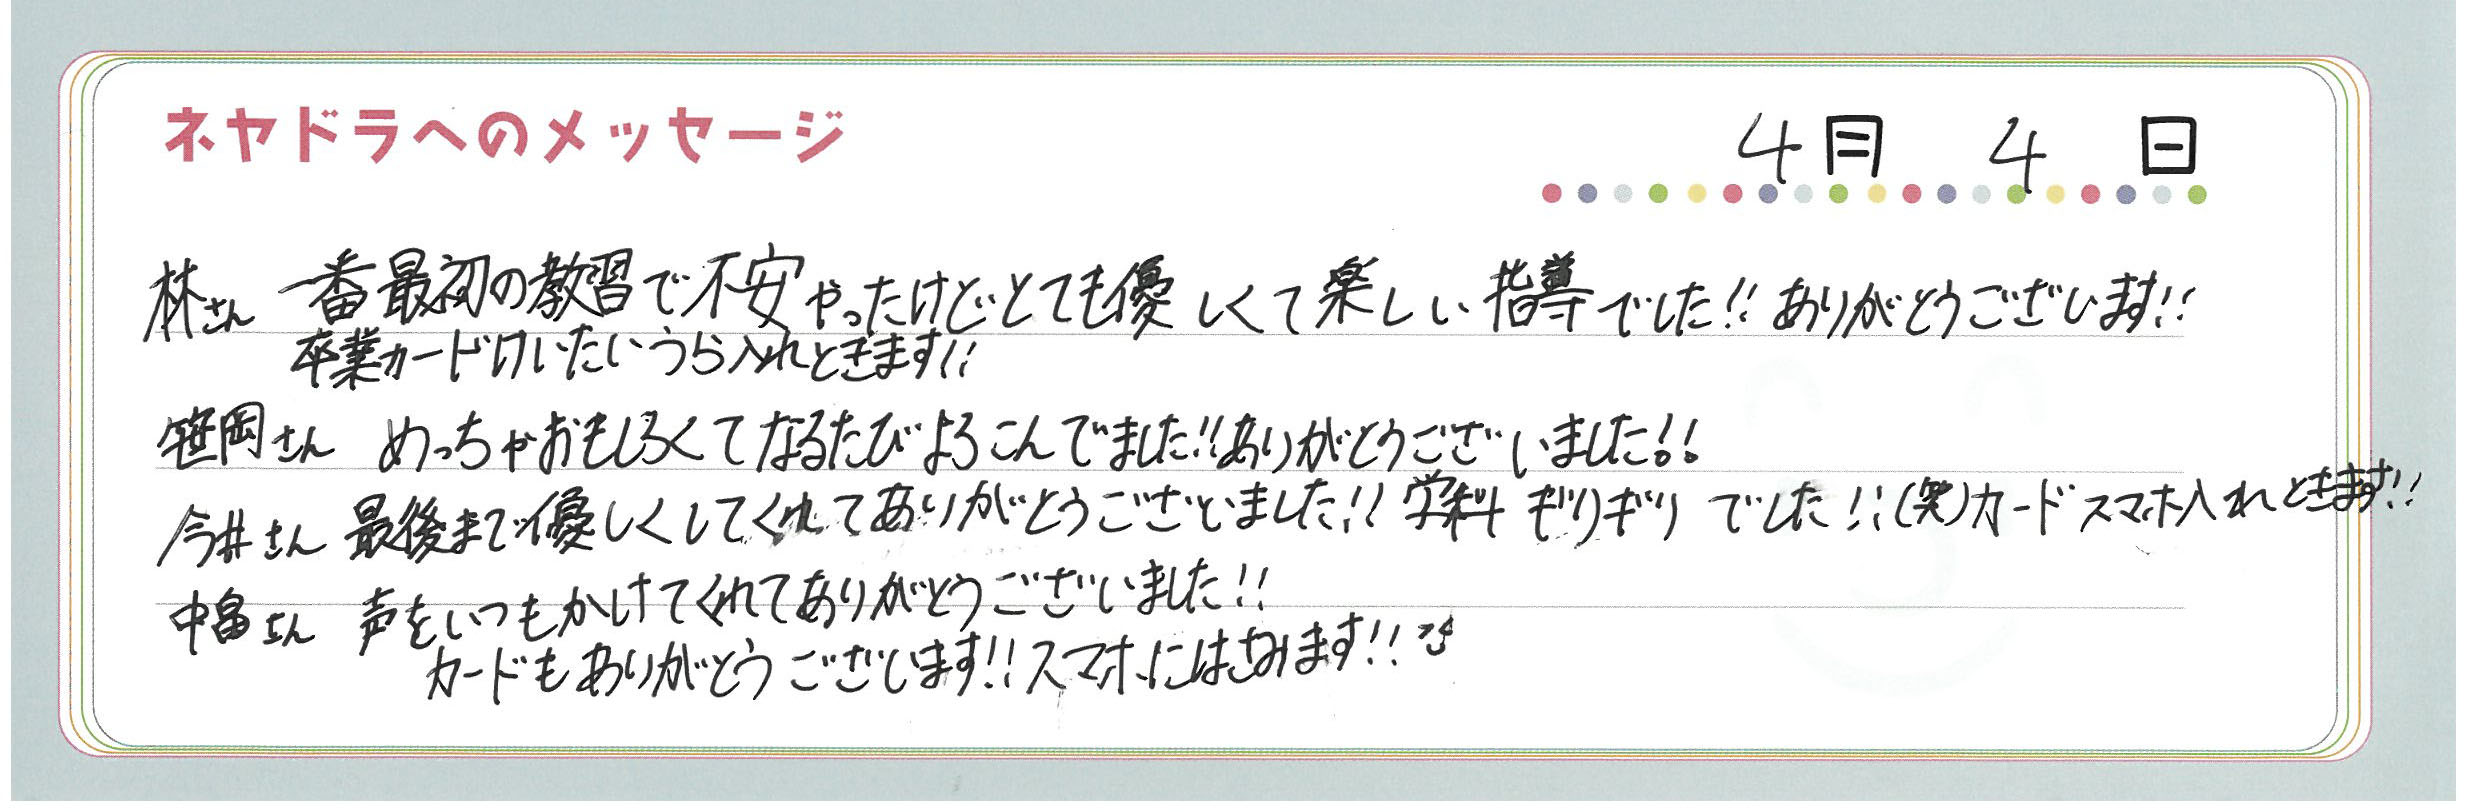 ネヤドラへのメッセージ
4月 4日
林さん 一番最初の教習で不安やったけどとても優しくて楽しい指導でした!! ありがとうございます!!
卒業カードけいたいうら入れときます!!
笹岡さん めっちゃおもしろくてなるたびよろこんでました!!ありがとうございました!!
今井さん 最後まで優しくしてくれてありがとうございました!! 学科ギリギリでした!!(笑)カードスマホ入れときます!!
中畠さん 声をいつもかけてくれてありがとうございました!!
カードもありがとうございます!!スマホにはさみます!!